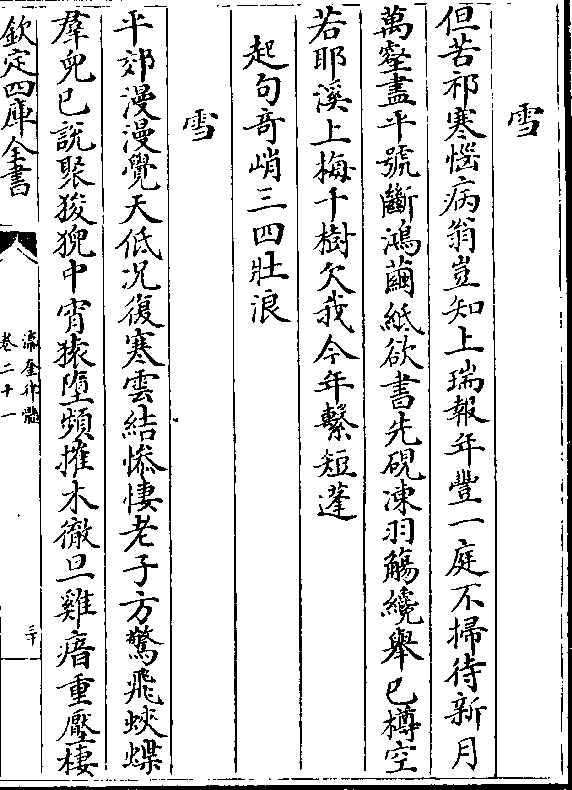 雪
但苦祁寒惱病翁豈知上瑞報年豐一庭不掃待新月
萬壑盡平號斷鴻繭紙欲書先硯凍羽觴纔舉已樽空
若耶溪上梅千樹欠我今年繫短蓬
起句奇峭三四壯浪
雪
平郊漫漫覺天低况復寒雲結慘悽老子方驚飛蛺蝶
羣兒已說聚狻猊中宵猿墮頻摧木徹旦雞瘖重壓棲
欽定四庫全書
瀛奎律髓
卷二十一
三十